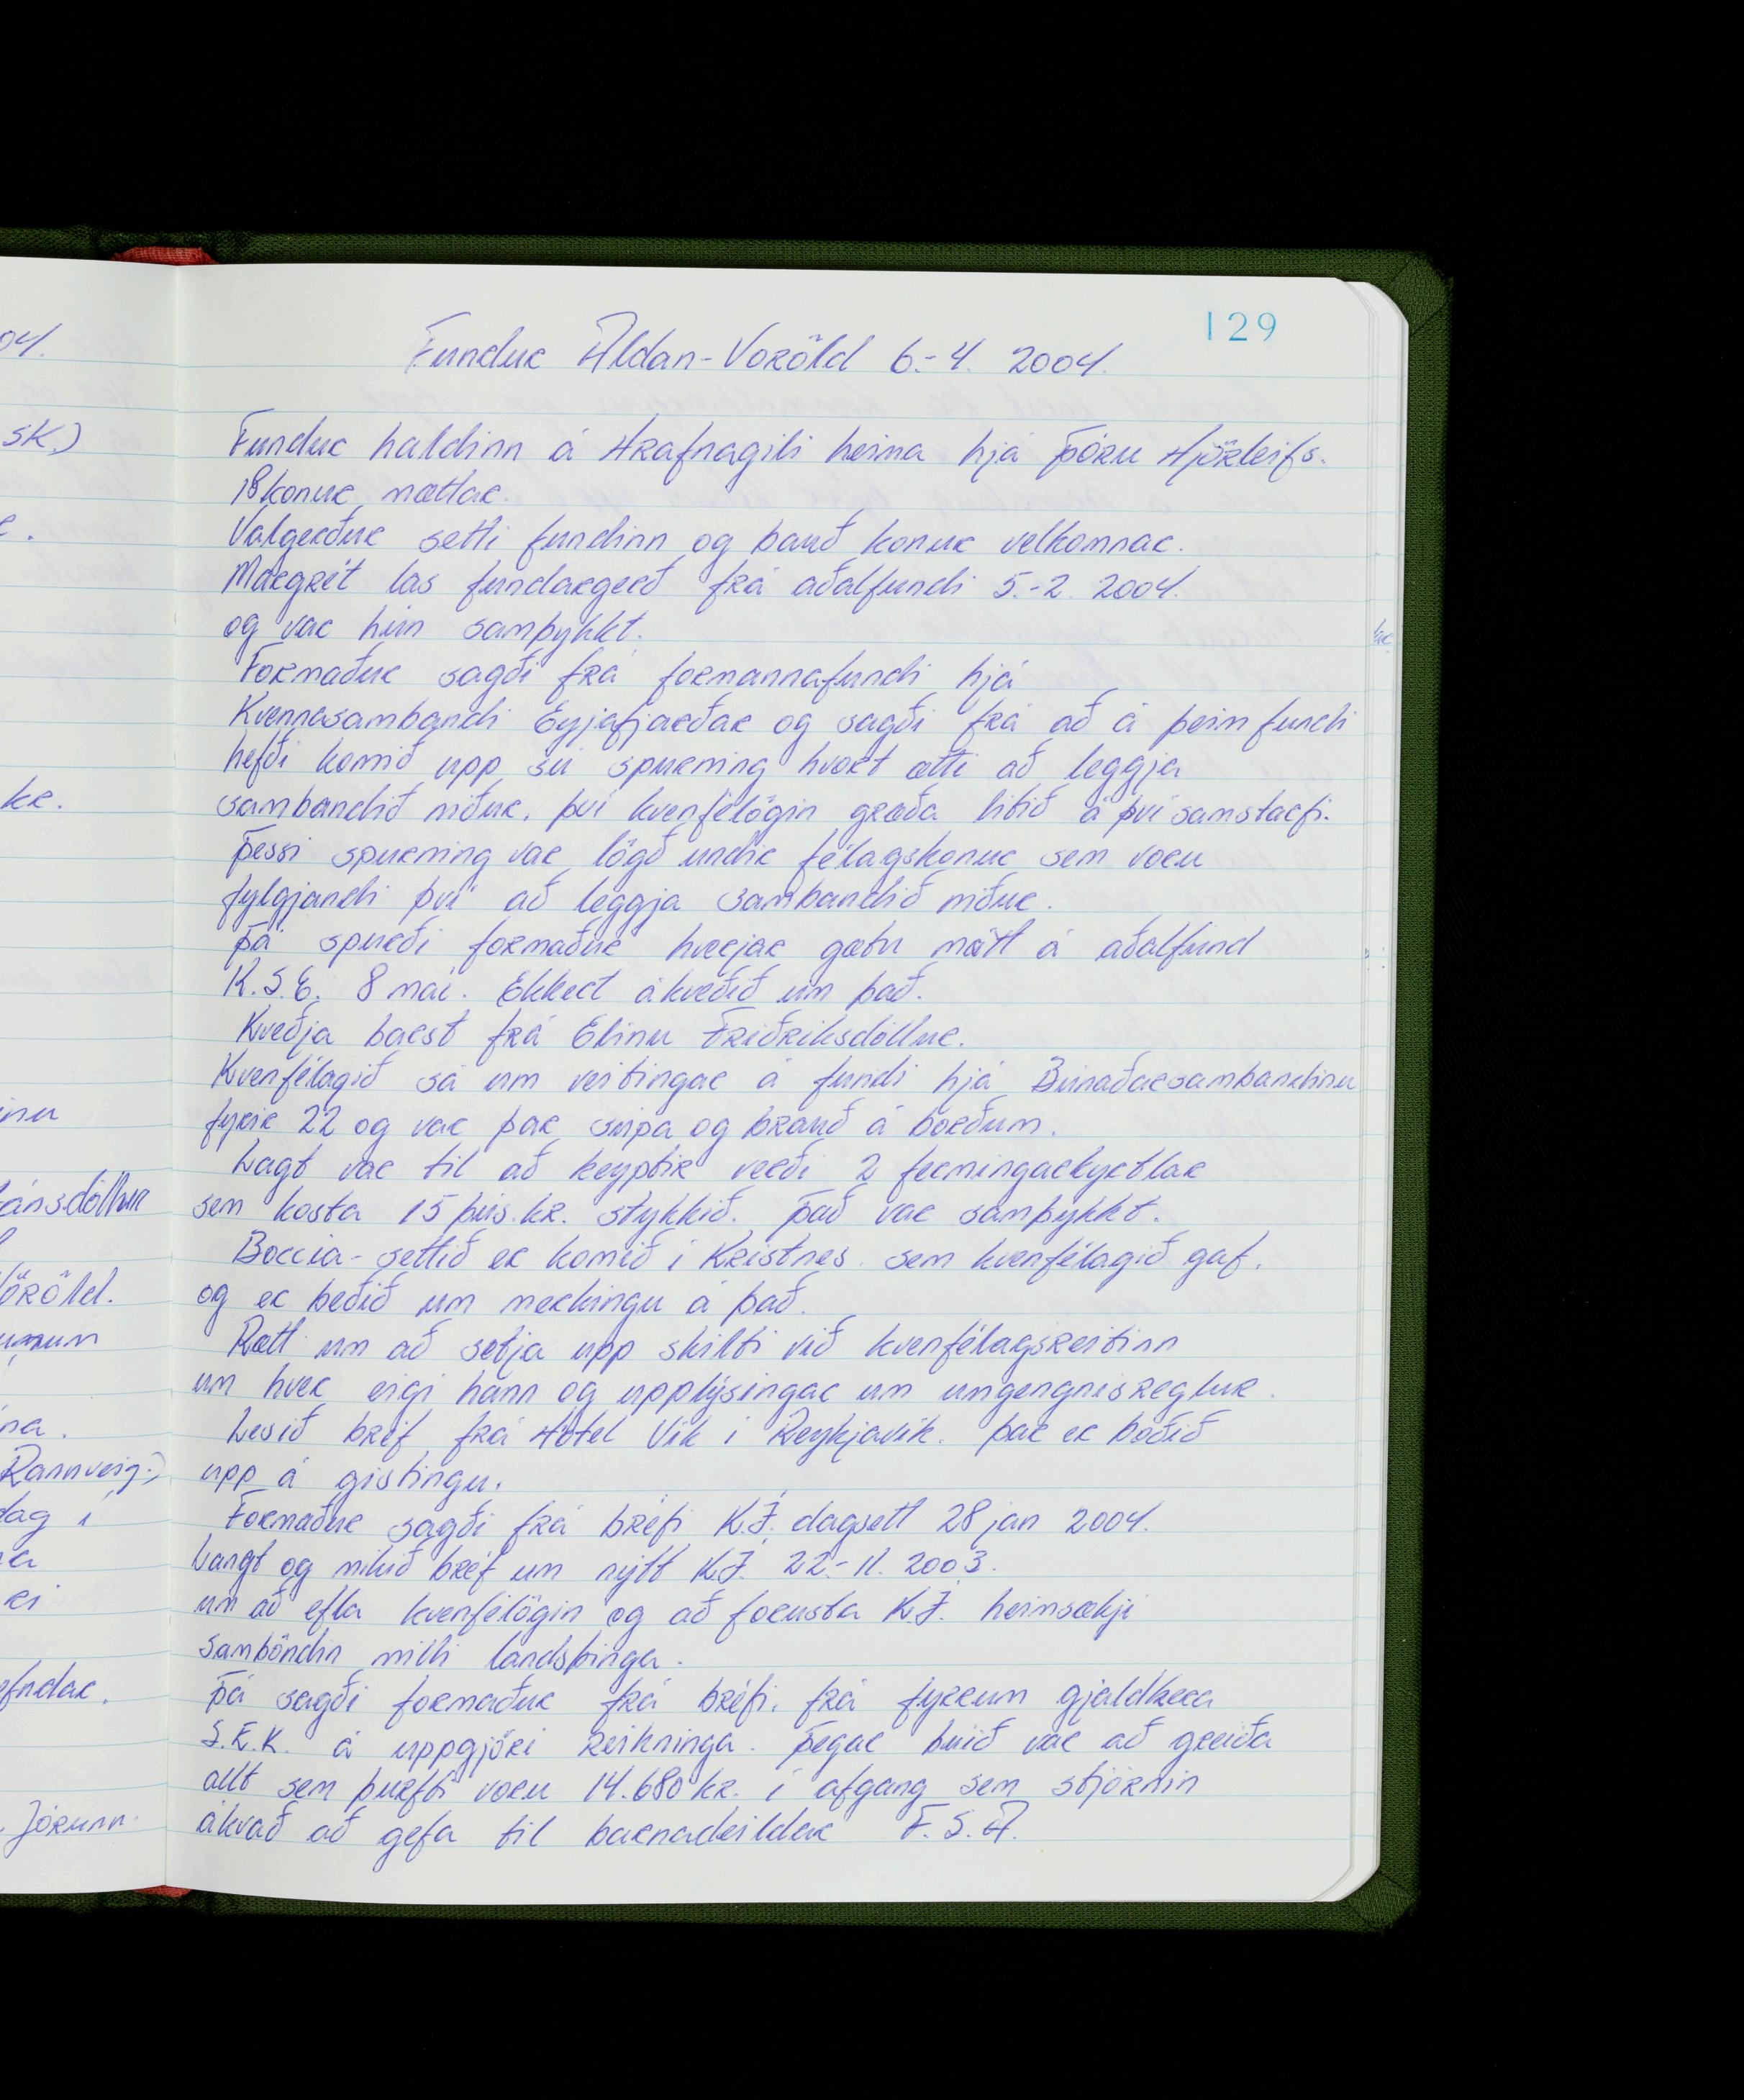 129
Fundur Aldan-Voröld 6.-4. 2004.
Fundur haldinn á Hrafnagili heima hjá Þóru Hjörleifs.
18 konur mættar.
Valgerður setti fundinn og bauð konur velkomnar.
Margrét las fundargerð frá aðalfundi 5.-2. 2004.
og var hún samþykkt.
Formaður sagði frá formannafundi hjá
Kvennasambandi Eyjafjarðar og sagði frá að á þeim fundi
hefði komið upp sú spurning hvort ætti að leggja
sambandið niður, því kvenfélögin græða lítið á því samstarfi.
Þessi spurning var lögð undir félagskonur sem voru
fylgjandi því að leggja sambandið niður.
Þá spurði formaður hverjar gætu mætt á aðalfund
K.S.E. 8 maí. Ekkert ákveðið um það.
Kveðja barst frá Elínu Friðriksdóttur.
Kvenfélagið sá um veitingar á fundi hjá Búnaðarsambandinu
fyrir 22 og var þar súpa og brauð á borðum.
Lagt var til að keyptir verði 2 fermingarkyrtlar
sem kosta 15 þús.kr. stykkið. Það var samþykkt.
Boccia-settið er komið í Kristnes sem kvenfélagið gaf.
og er beðið um merkingu á það.
Rætt um að setja upp skilti við kvenfélagsreitinn
um hver eigi hann og upplýsingar um umgengnisreglur.
Lesið bréf frá Hótel Vík í Reykjavík. þar er boðið
upp á gistingu.
Formaður sagði frá bréfi K.Í. dagsett 28 jan 2004.
Langt og mikið bréf um nýtt K.Í. 22.-11. 2003.
um að efla kvenfélögin og að forusta K.Í. heimsækji
samböndin milli landsþinga.
Þá sagði formaður frá bréfi, frá fyrrum gjaldkera
S.E.K. á uppgjöri reikninga. Þegar búið var að greiða
allt sem þurfti voru 14.680 kr. í afgang sem stjórnin
ákvað að gefa til barnadeildar F.S.A.